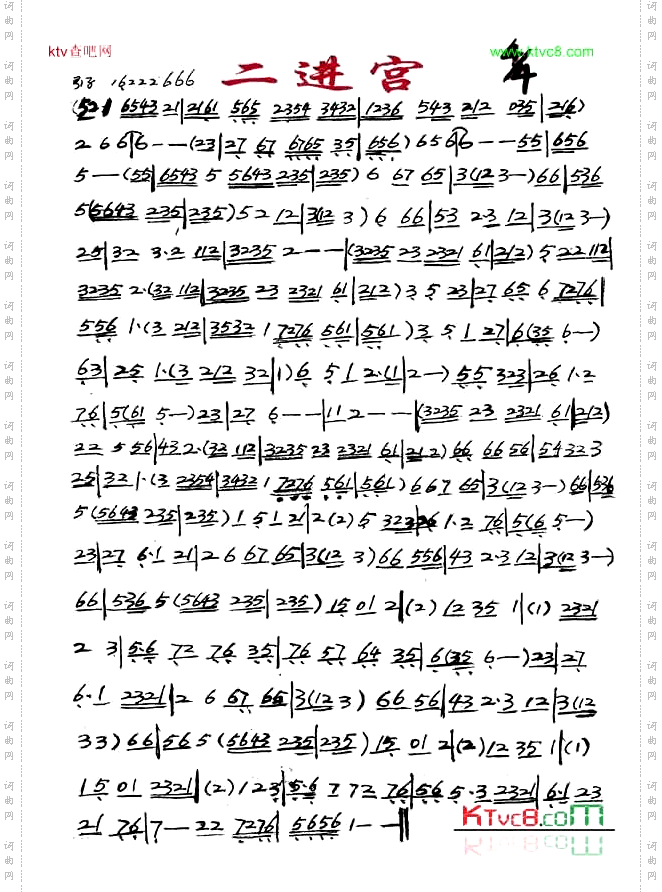 ktv查吧网
二进宫
www.ktvc8.com
16222666
(521 6543 21|2161 565 2354 3432|1236 543 212 035|216)
2 6 6 6 6·—— (23|27 67 6765 35|656) 656 6——55|656
5—— (55|6543 5 5643 235|235) 6 67 65|3(12 3—) 66|536
5(5643 235|235) 52 12|3(12 3) 6 66|53 2·3 12|3(12 3—)
25|32 3·2 112|3235 2——|(3235 23 2321 61|212) 5 2 2 112|
3235 2·(32 112|3235 23 2321 61|212) 3 5 23|27 65 6 7276|
556 1·(3 212|3532 1 7276 561|561) 3 5 1 27|6(35 6—)
63|25 1·(3 212 32|1) 6 5 1 2·(1|2—) 55 323|26 1·2
76|5(61 5—) 23|27 6——|11 2——|(3235 23 2321 61|212)
22 5 56|432·(32 112|3235 23 2321 61|212) 66 66 56|5432 3
25|32 1·(3 2354|3432 1 7276 561|561) 667 65|3(12 3—) 66|536
5(5643 235|235) 1 5 1 21|2(2) 5 323 26 1·2 76|5(6 5—)
23|27 6·1 21|2 6 67 65|3(12 3) 66 556|43 2·3 12|3(12 3—)
66|536·5 (5643 235|235) 15 01 2|(2) 12 35 1|(1) 2321
2 3|5·6 72 76 35|76 57 64 35|6(35 6—) 23|27
6·1 2321|2 6 67 65|3(12 3) 66 56|43 2·3 12|3(12
33) 66|565 (5643 235|235) 15 01 2|(2) 12 35 1|(1)
15 01 2321|(2) 123|5·6 7 72 76|56 5·3 2321|6·1 23
21 76|7— 22 7276|5656 1—‖
KTvc8.com
词曲网